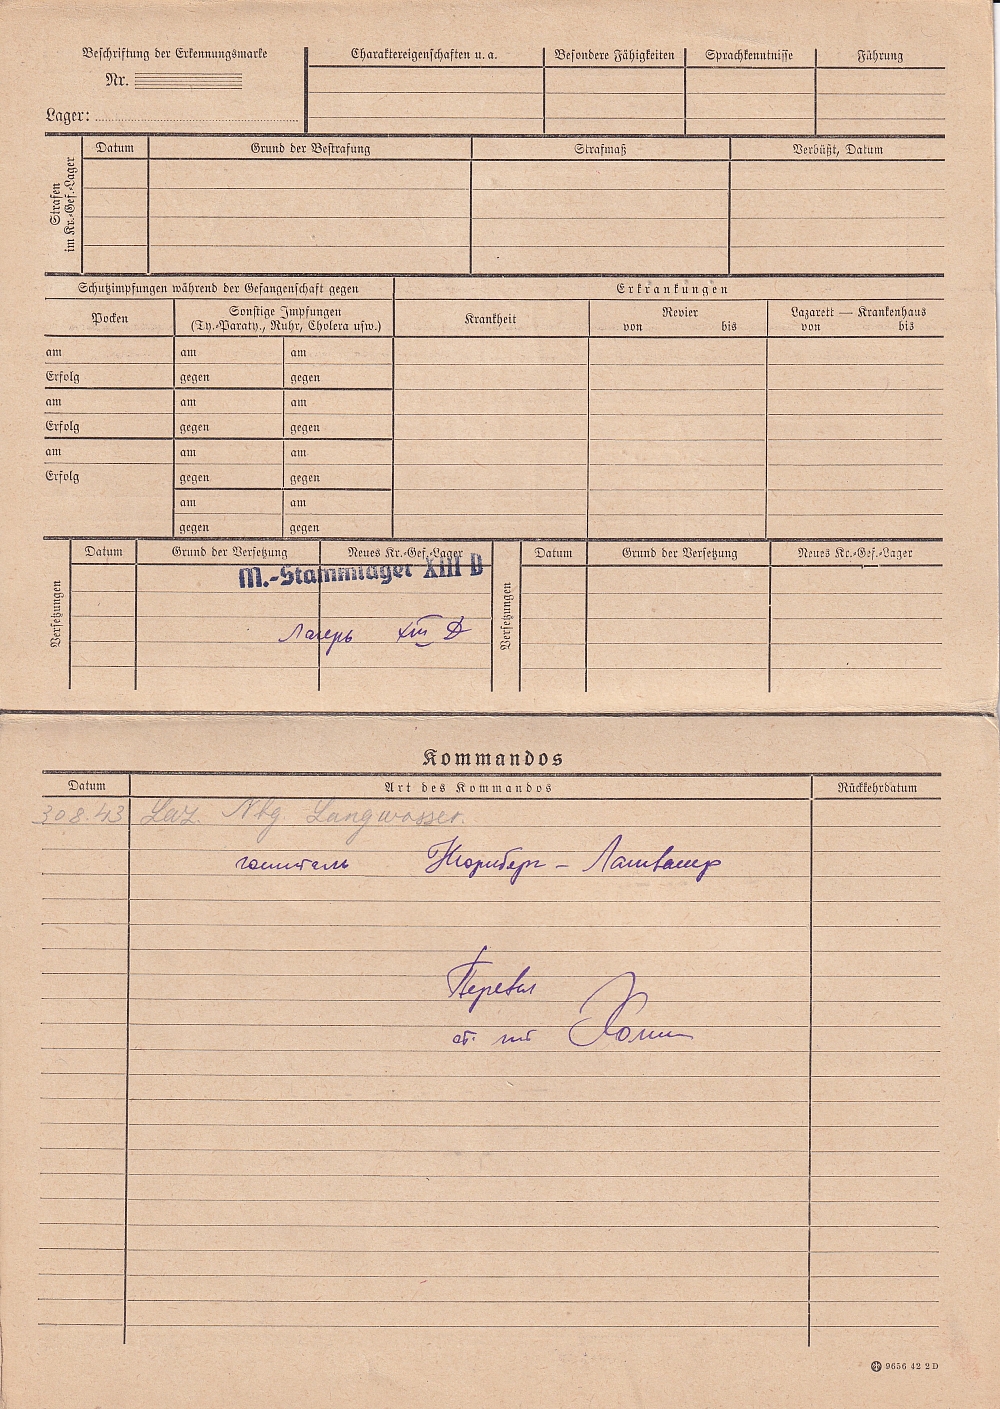 Beschriftung der Erkennungsmarke
Nr.
Lager:
Charaktereigenschaften u. a.
Besondere Fähigkeiten
Sprachkenntnisse
Führung
Strafen
im Kr.-Gef.-Lager
Datum
Grund der Bestrafung
Strafmaß
Verbüßt, Datum
Schutzimpfungen während der Gefangenschaft gegen
Erkrankungen
Pocken
Sonstige Impfungen
(Ty.-Paraty., Ruhr, Cholera usw.)
Krankheit
Revier
von bis
Lazarett — Krankenhaus
von bis
am am am
Erfolg gegen gegen
am am am
Erfolg gegen gegen
am am am
Erfolg gegen gegen
am am
gegen gegen
Versetzungen
Datum
Grund der Versetzung
Neues Kr.-Gef.-Lager
M.-Stammlager XIII D
Лагерь XIII D
Versetzungen
Datum
Grund der Versetzung
Neues Kr.-Gef.-Lager
Kommandos
Datum
Art des Kommandos
Rückkehrdatum
30.8.43 Laz. Nbg. Langwasser.
госпиталь Нюрнберг – Лангвассер
Перевел
ст. л-т
9656 42 2 D